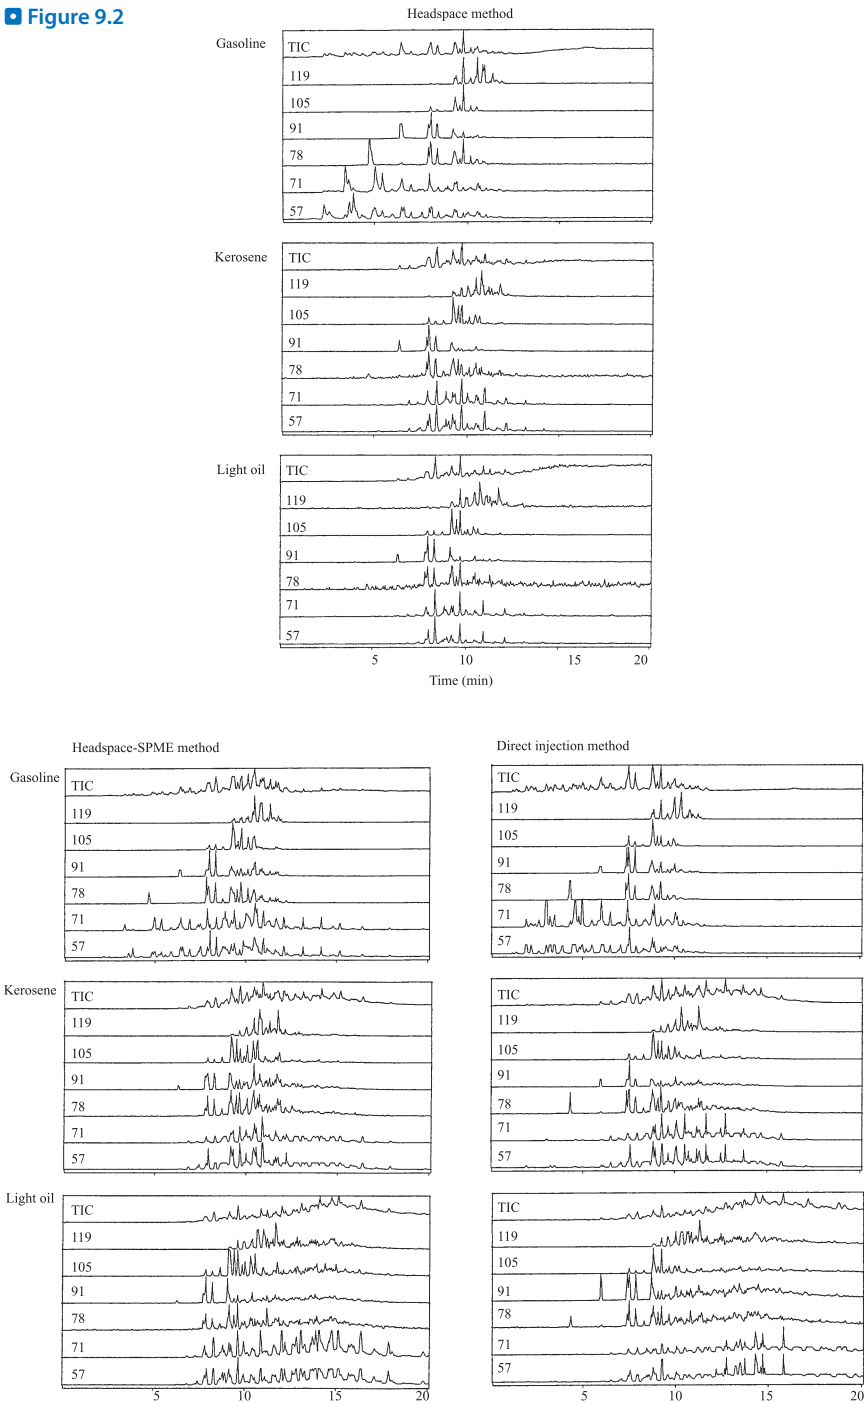 Figure 9.2
Headspace method
Gasoline
TIC
119
105
91
78
71
57
Kerosene
TIC
119
105
91
78
71
57
Light oil
TIC
119
105
91
78
71
57
5 10 15 20
Time (min)
Headspace-SPME method
Gasoline
TIC
119
105
91
78
71
57
Kerosene
TIC
119
105
91
78
71
57
Light oil
TIC
119
105
91
78
71
57
5 10 15 20
Direct injection method
TIC
119
105
91
78
71
57
TIC
119
105
91
78
71
57
TIC
119
105
91
78
71
57
5 10 15 20